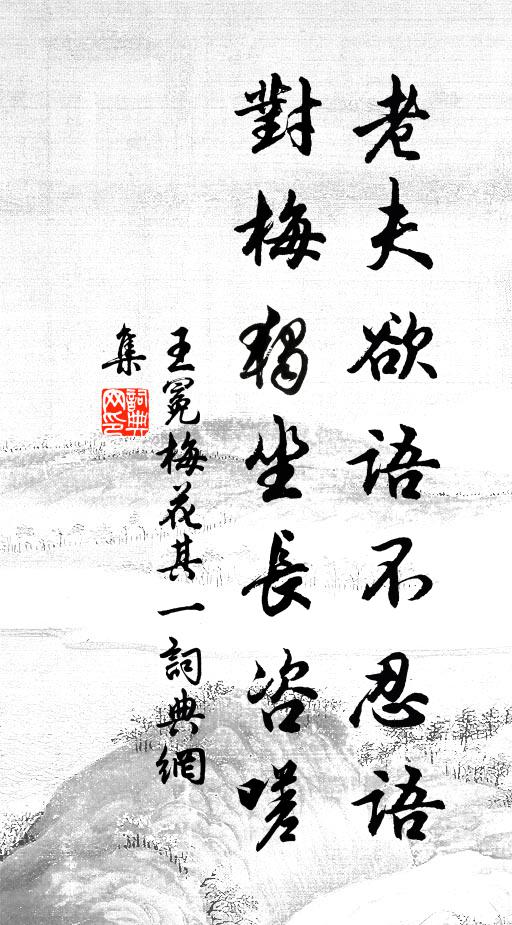 老夫欲語不忍語
對梅獨坐長咨嗟
王冕梅花其一詞典網
集
詞典
网印